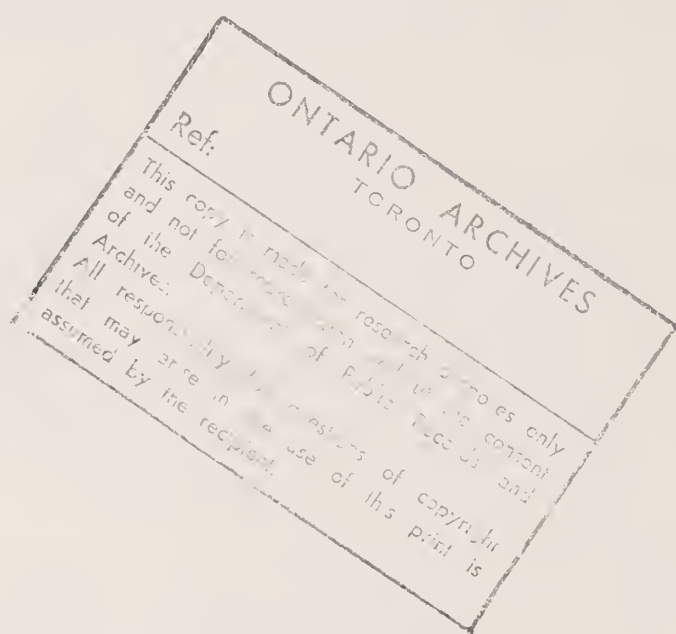 ONTARIO ARCHIVES
TORONTO
Ref:
This copy is made for research purposes only
and not for reproduction without the consent
of the Department of Public Records and
Archives.
All responsibility for questions of copyright
that may arise in the use of this print is
assumed by the recipient.